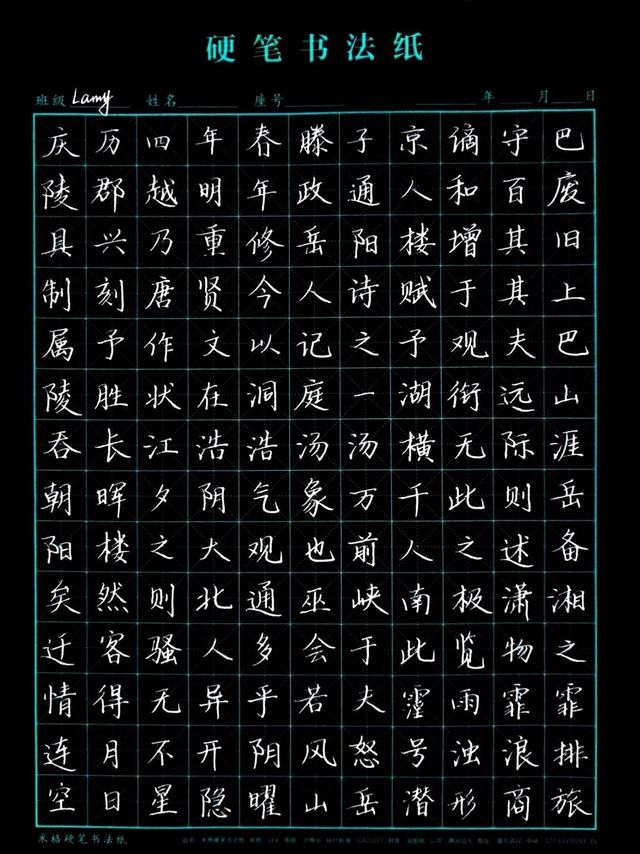 硬笔书法纸
班级 Lamy 姓名 座号 年 月 日
庆历四年春滕子京谪守巴
陵郡越明年政通人和百废
具兴乃重修岳阳楼增其旧
制刻唐贤今人诗赋于其上
属予作文以记之予观夫巴
陵胜状在洞庭一湖衔远山
吞长江浩浩汤汤横无际涯
朝晖夕阴气象万千此则岳
阳楼之大观也前人之述备
矣然则北通巫峡南极潇湘
迁客骚人多会于此览物之
情得无异乎若夫霪雨霏霏
连月不开阴风怒号浊浪排
空日星隐曜山岳潜形商旅
米格硬笔书法纸